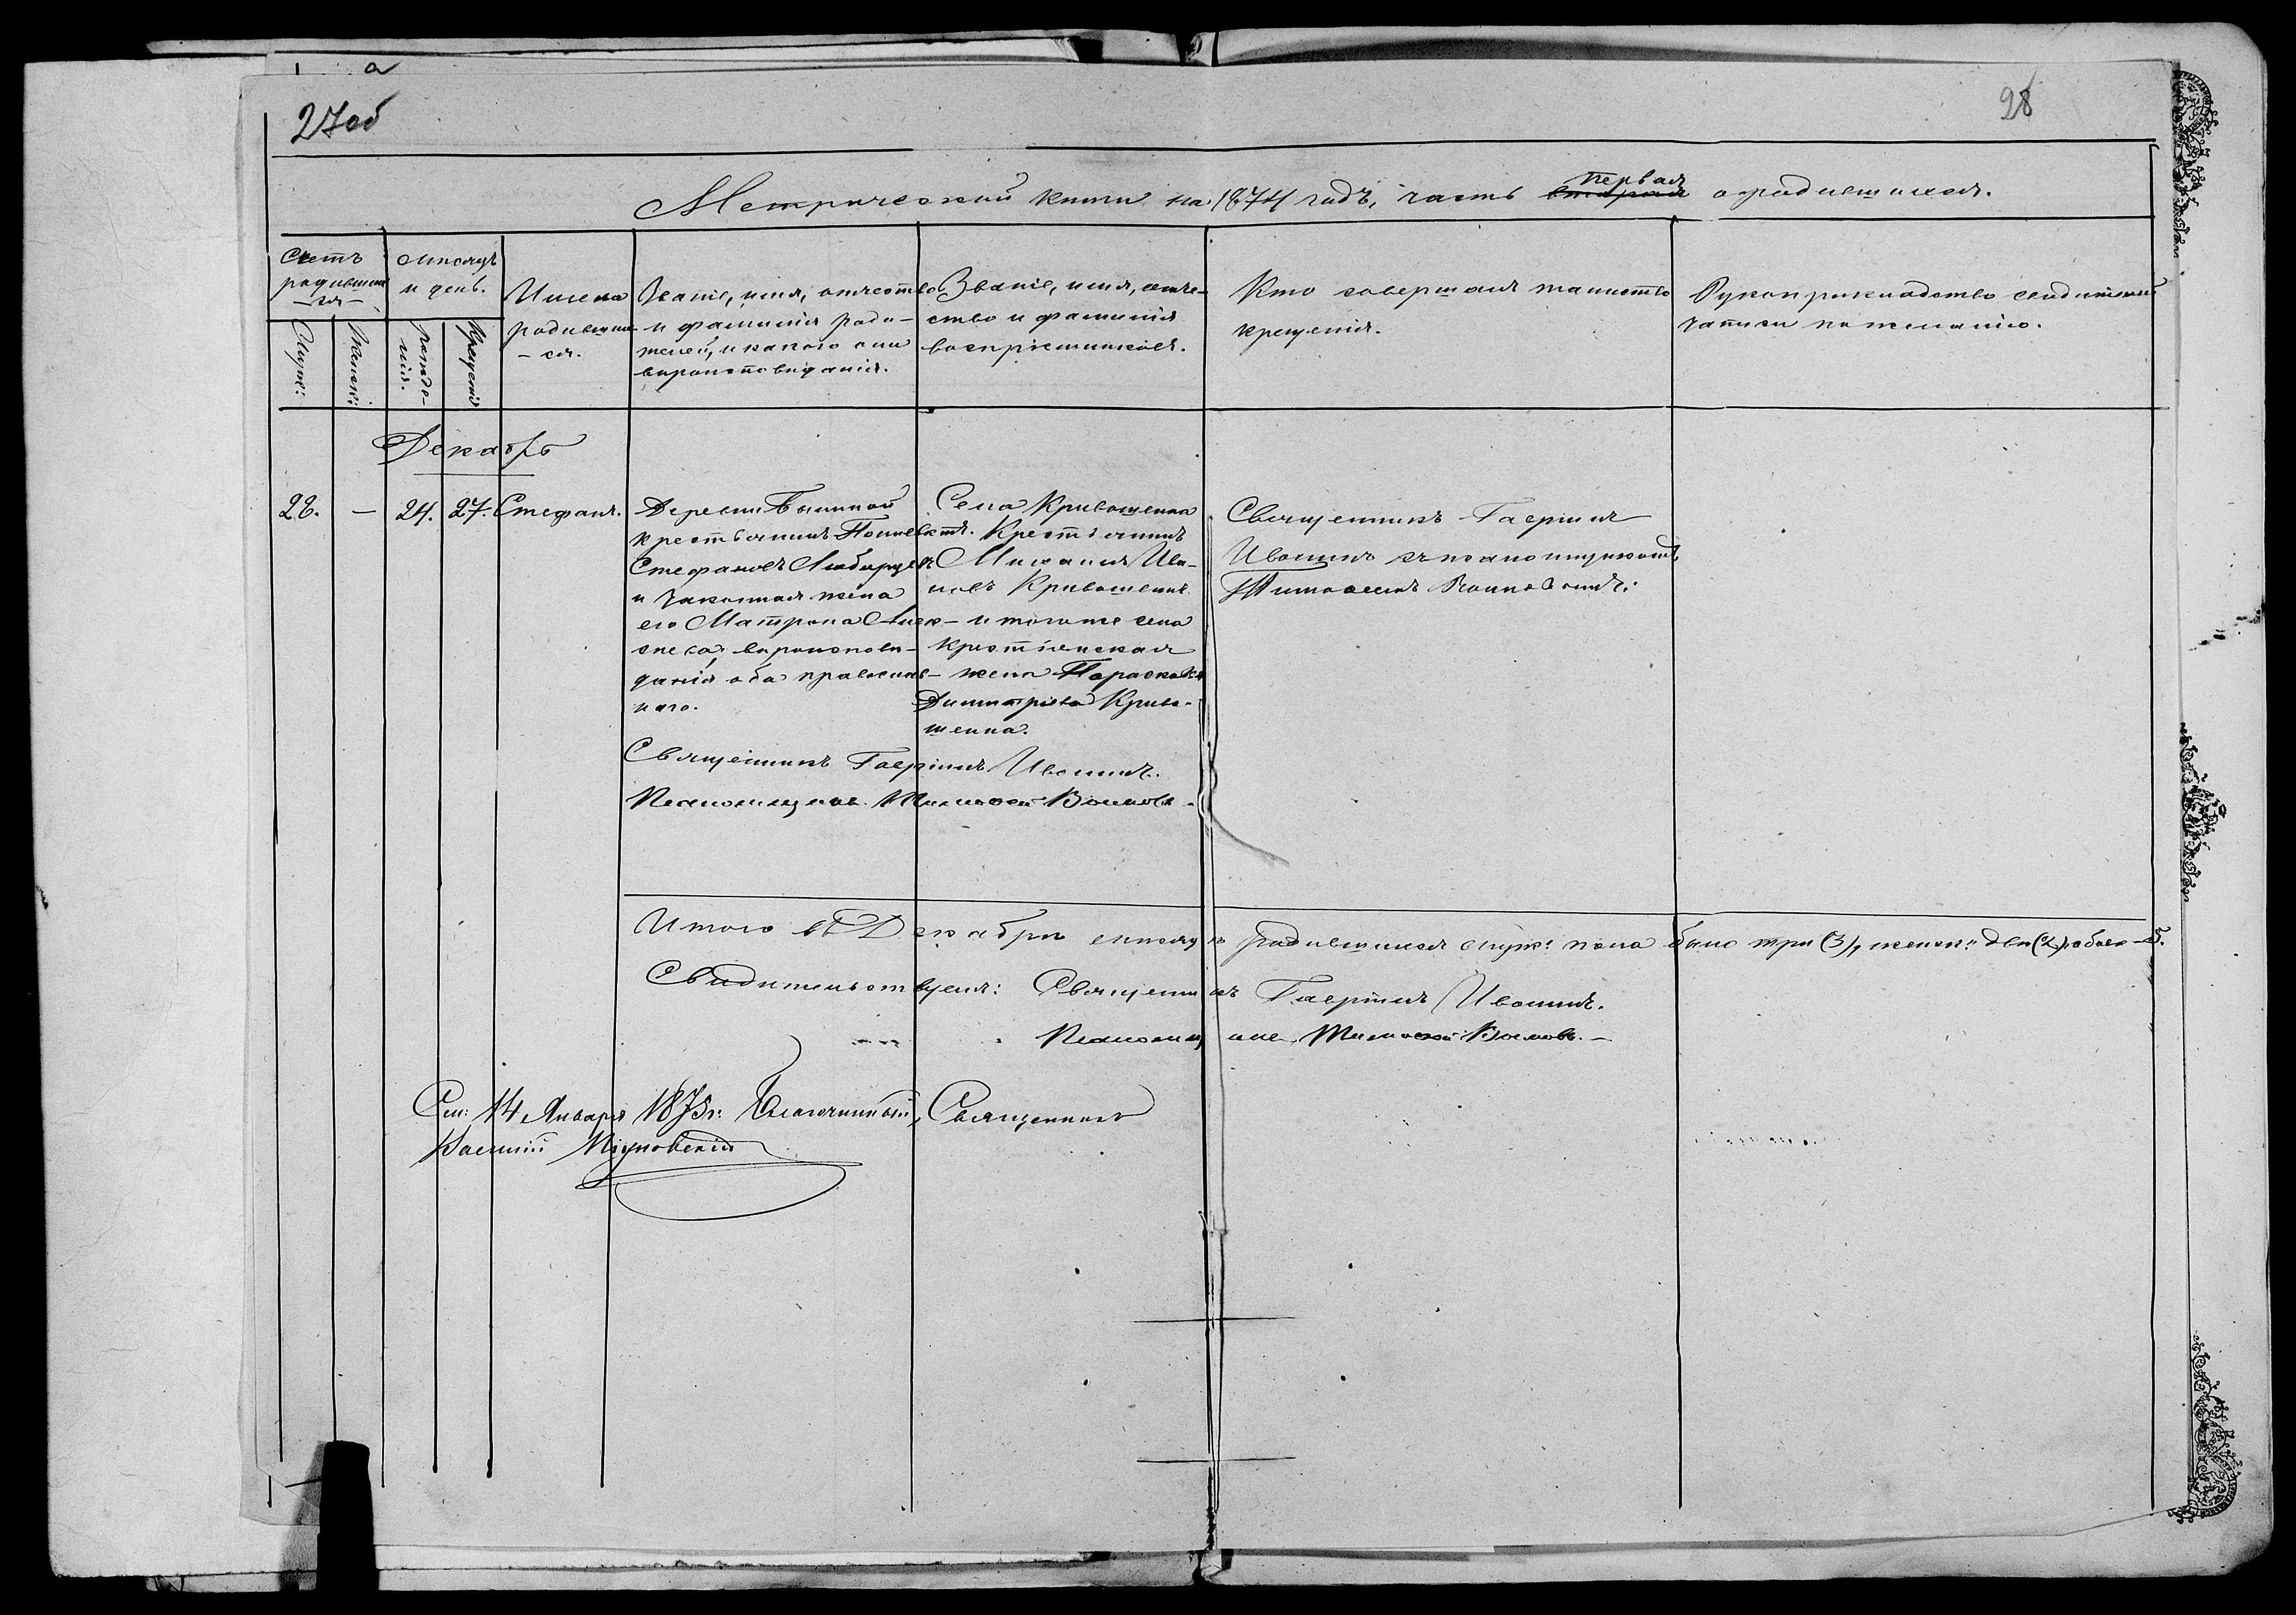 27об
28
Метрической книги на 1874 годъ, часть вторая первая о родившихся.
Счетъ родивших-ся
Мѣсяцъ и день.
Имена родивших-ся.
Званіе, имя, отчество и фамилія роди-телей, и какого они вѣроисповѣданія.
Званіе, имя, отче-ство и фамилія воспріемниковъ.
Кто совершалъ таинство крещенія.
Рукоприкладство свидѣтелей записи по желанію.
Мужс:
Женск:
Рожде-нія.
Крещенія
Декабрь
22. — 24. 27. Стефанъ.
Деревни
крестьянинъ
Стефановъ
и законная жена
его Матрона Алек-
сѣева, вѣроисповѣ-
данія оба православ-
наго.
Священникъ Гавріилъ Ивошинъ.
Псаломщикъ Тимофей Воиновъ.
Села Кривошеина
Крестьянинъ
Михаилъ Ива-
новъ Кривошеинъ
и того же села
крестьянская
жена Параскева
Димитріева Криво-
шеина.
Священникъ Гавріилъ
Ивошинъ съ псаломщикомъ
Тимофеемъ Воиновымъ.
Итого въ Декабрѣ мѣсяцѣ родившихся муж: пола было три (3), женск: два (2), обоего 5.
Свидѣтельствуемъ: Священникъ Гавріилъ Ивошинъ.
Псаломщикъ Тимофей Воиновъ.
См: 14 Января 1875 г: Благочинный, Священникъ
Василій